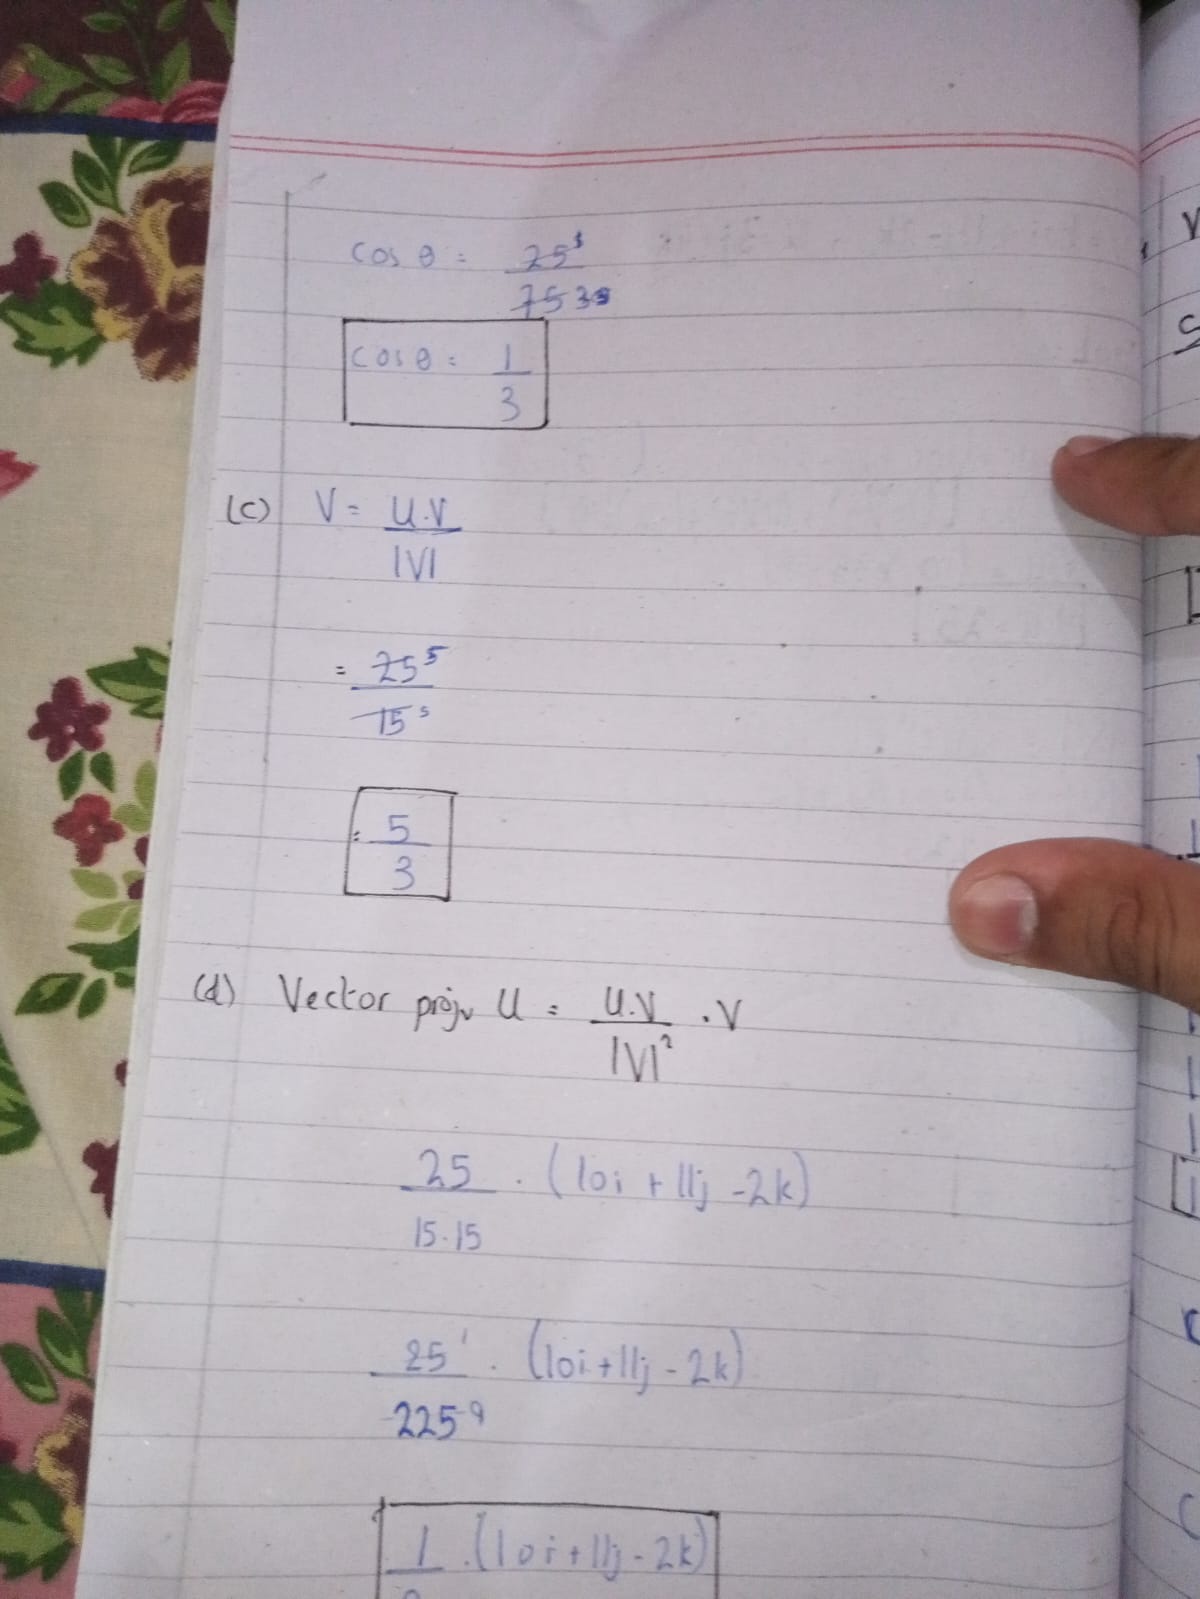 cos θ = 25¹
75 3
cos θ = 1
3
(c) V = U.V
|V|
= 25⁵
15³
= 5
3
(d) Vector projᵥ U = U.V . V
|V|²
25 . (10i + 11j - 2k)
15.15
25¹ . (10i + 11j - 2k)
225⁹
1 . (10i + 11j - 2k)